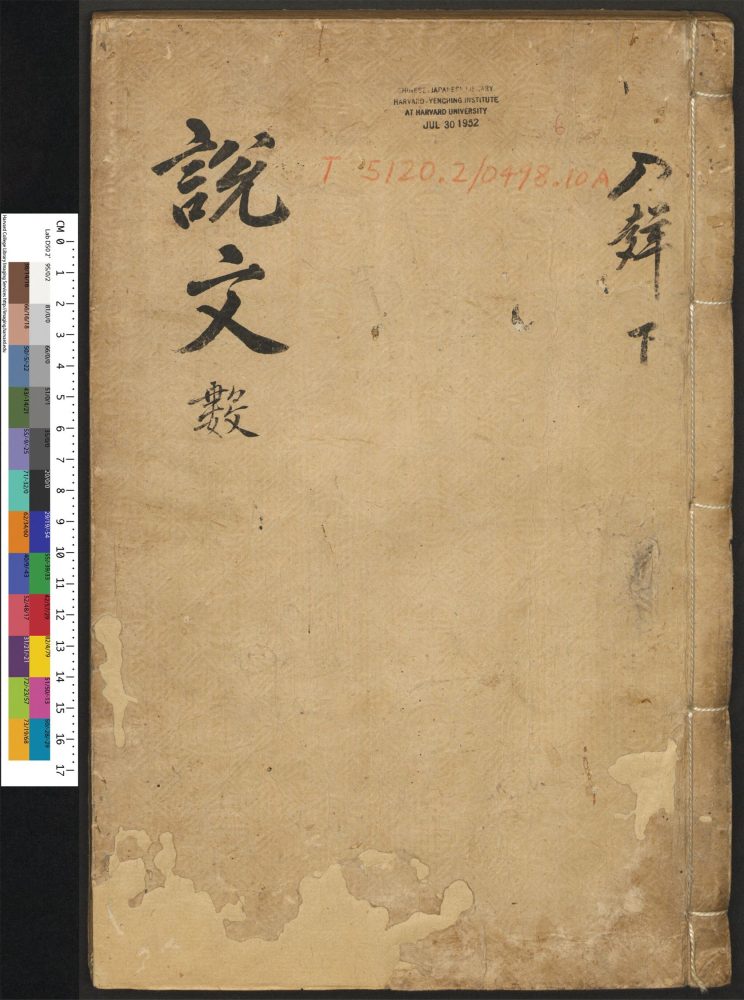 CHINESE-JAPANESE LIBRARY
HARVARD-YENCHING INSTITUTE
AT HARVARD UNIVERSITY
JUL 30 1952
6
T 5120.2/0498.10A
入聲 下
說文 數
CM 0 1 2 3 4 5 6 7 8 9 10 11 12 13 14 15 16 17